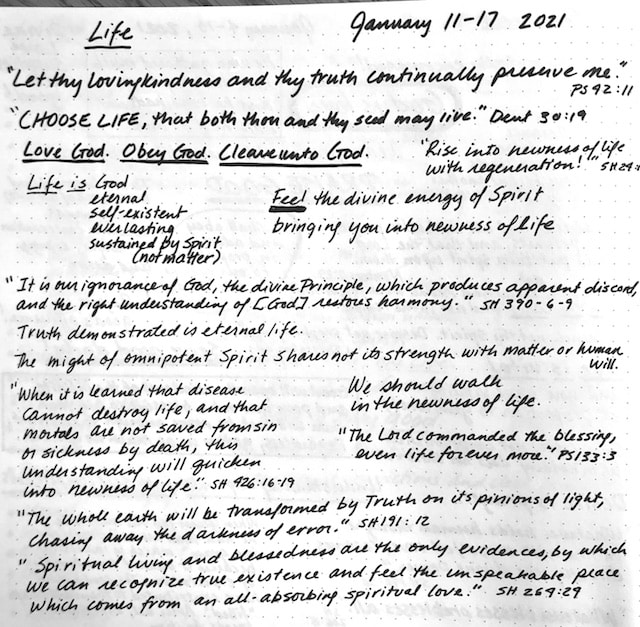 Life
January 11-17 2021
"Let thy lovingkindness and thy truth continually preserve me."
PS 42:11
"CHOOSE LIFE, that both thou and thy seed may live." Deut 30:19
Love God. Obey God. Cleave unto God.
"Rise into newness of life
with regeneration!" SH 24:
Life is God
eternal
self-existent
everlasting
sustained by Spirit
(not matter)
Feel the divine energy of Spirit
bringing you into newness of life
"It is our ignorance of God, the divine Principle, which produces apparent discord,
and the right understanding of [God] restores harmony." SH 390-6-9
Truth demonstrated is eternal life.
The might of omnipotent Spirit shares not its strength with matter or human
will.
"When it is learned that disease
cannot destroy life, and that
mortals are not saved from sin
or sickness by death, this
understanding will quicken
into newness of life." SH 426:16-19
We should walk
in the newness of life.
"The Lord commanded the blessing,
even life forever more." PS 133:3
"The whole earth will be transformed by Truth on its pinions of light,
chasing away the darkness of error." SH 191:12
"Spiritual living and blessedness are the only evidences, by which
we can recognize true existence and feel the unspeakable peace
which comes from an all-absorbing spiritual love." SH 264:29